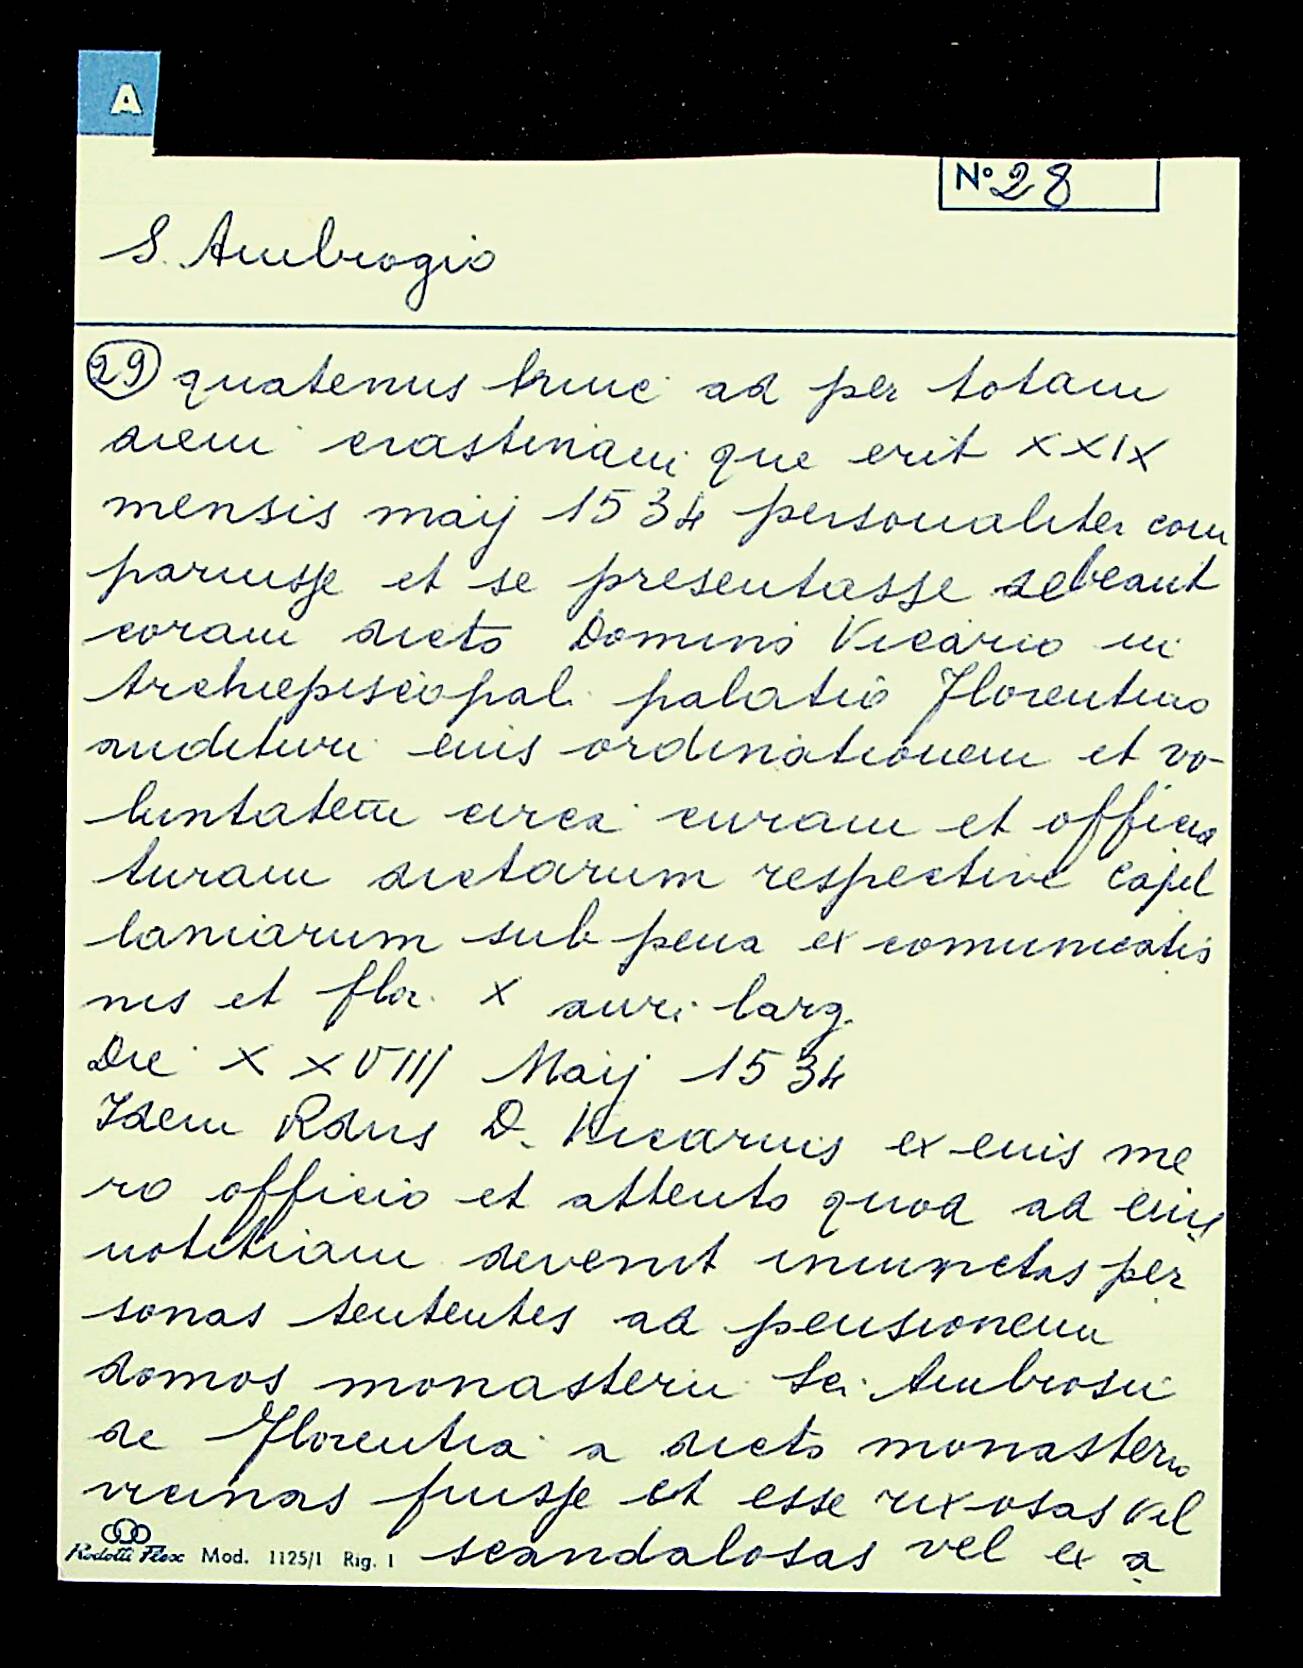 A
N° 28
S. Ambrogio
29 quatenus hinc ad per totam
diem crastinam que erit XXIX
mensis maij 1534 personaliter com
paruisse et se presentasse debeant
coram dicto Domino Vicario in
Archiepiscopal. palatio Florentino
audituri eius ordinationem et vo-
luntatem circa curam et officia
turam dictarum respective Capel
laniarum sub pena excomunicatio
nis et flor. X auri larg.
Die XXVIII Maij 1534
Idem Rdus D. Vicarius ex eius me
ro officio et attento quod ad eius
notitiam devenit personas
sonas tenentes ad pensionem
domos monasterii Sci. Ambrosii
de Florentia a dicto monasterio
vicinas fuisse et esse rixosas vel
scandalosas vel ex a
Rodotti Flex Mod. 1125/1 Rig. 1